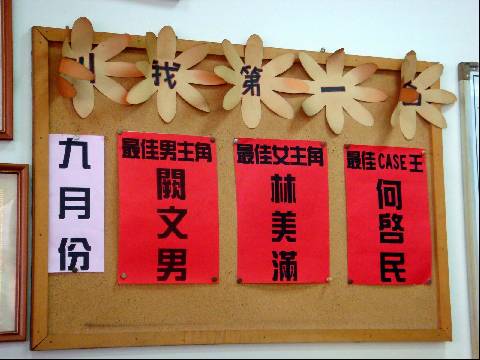 找第一名
九月份
最佳男主角
闕文男
最佳女主角
林美滿
最佳CASE王
何啓民